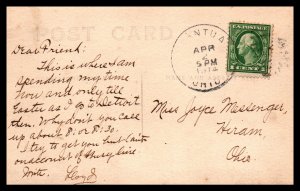 POST CARD
MANTUA
APR
5 PM
OHIO
U.S. POSTAGE
Dear Friend:
This is where I am
spending my time
now and only till
Easter as I go to Detroit
then. Why don't you call
up about 8. or 8:30.
I try to get you but can't
on account of the city line
Write
Lloyd
Miss Joyce Messenger,
Hiram,
Ohio